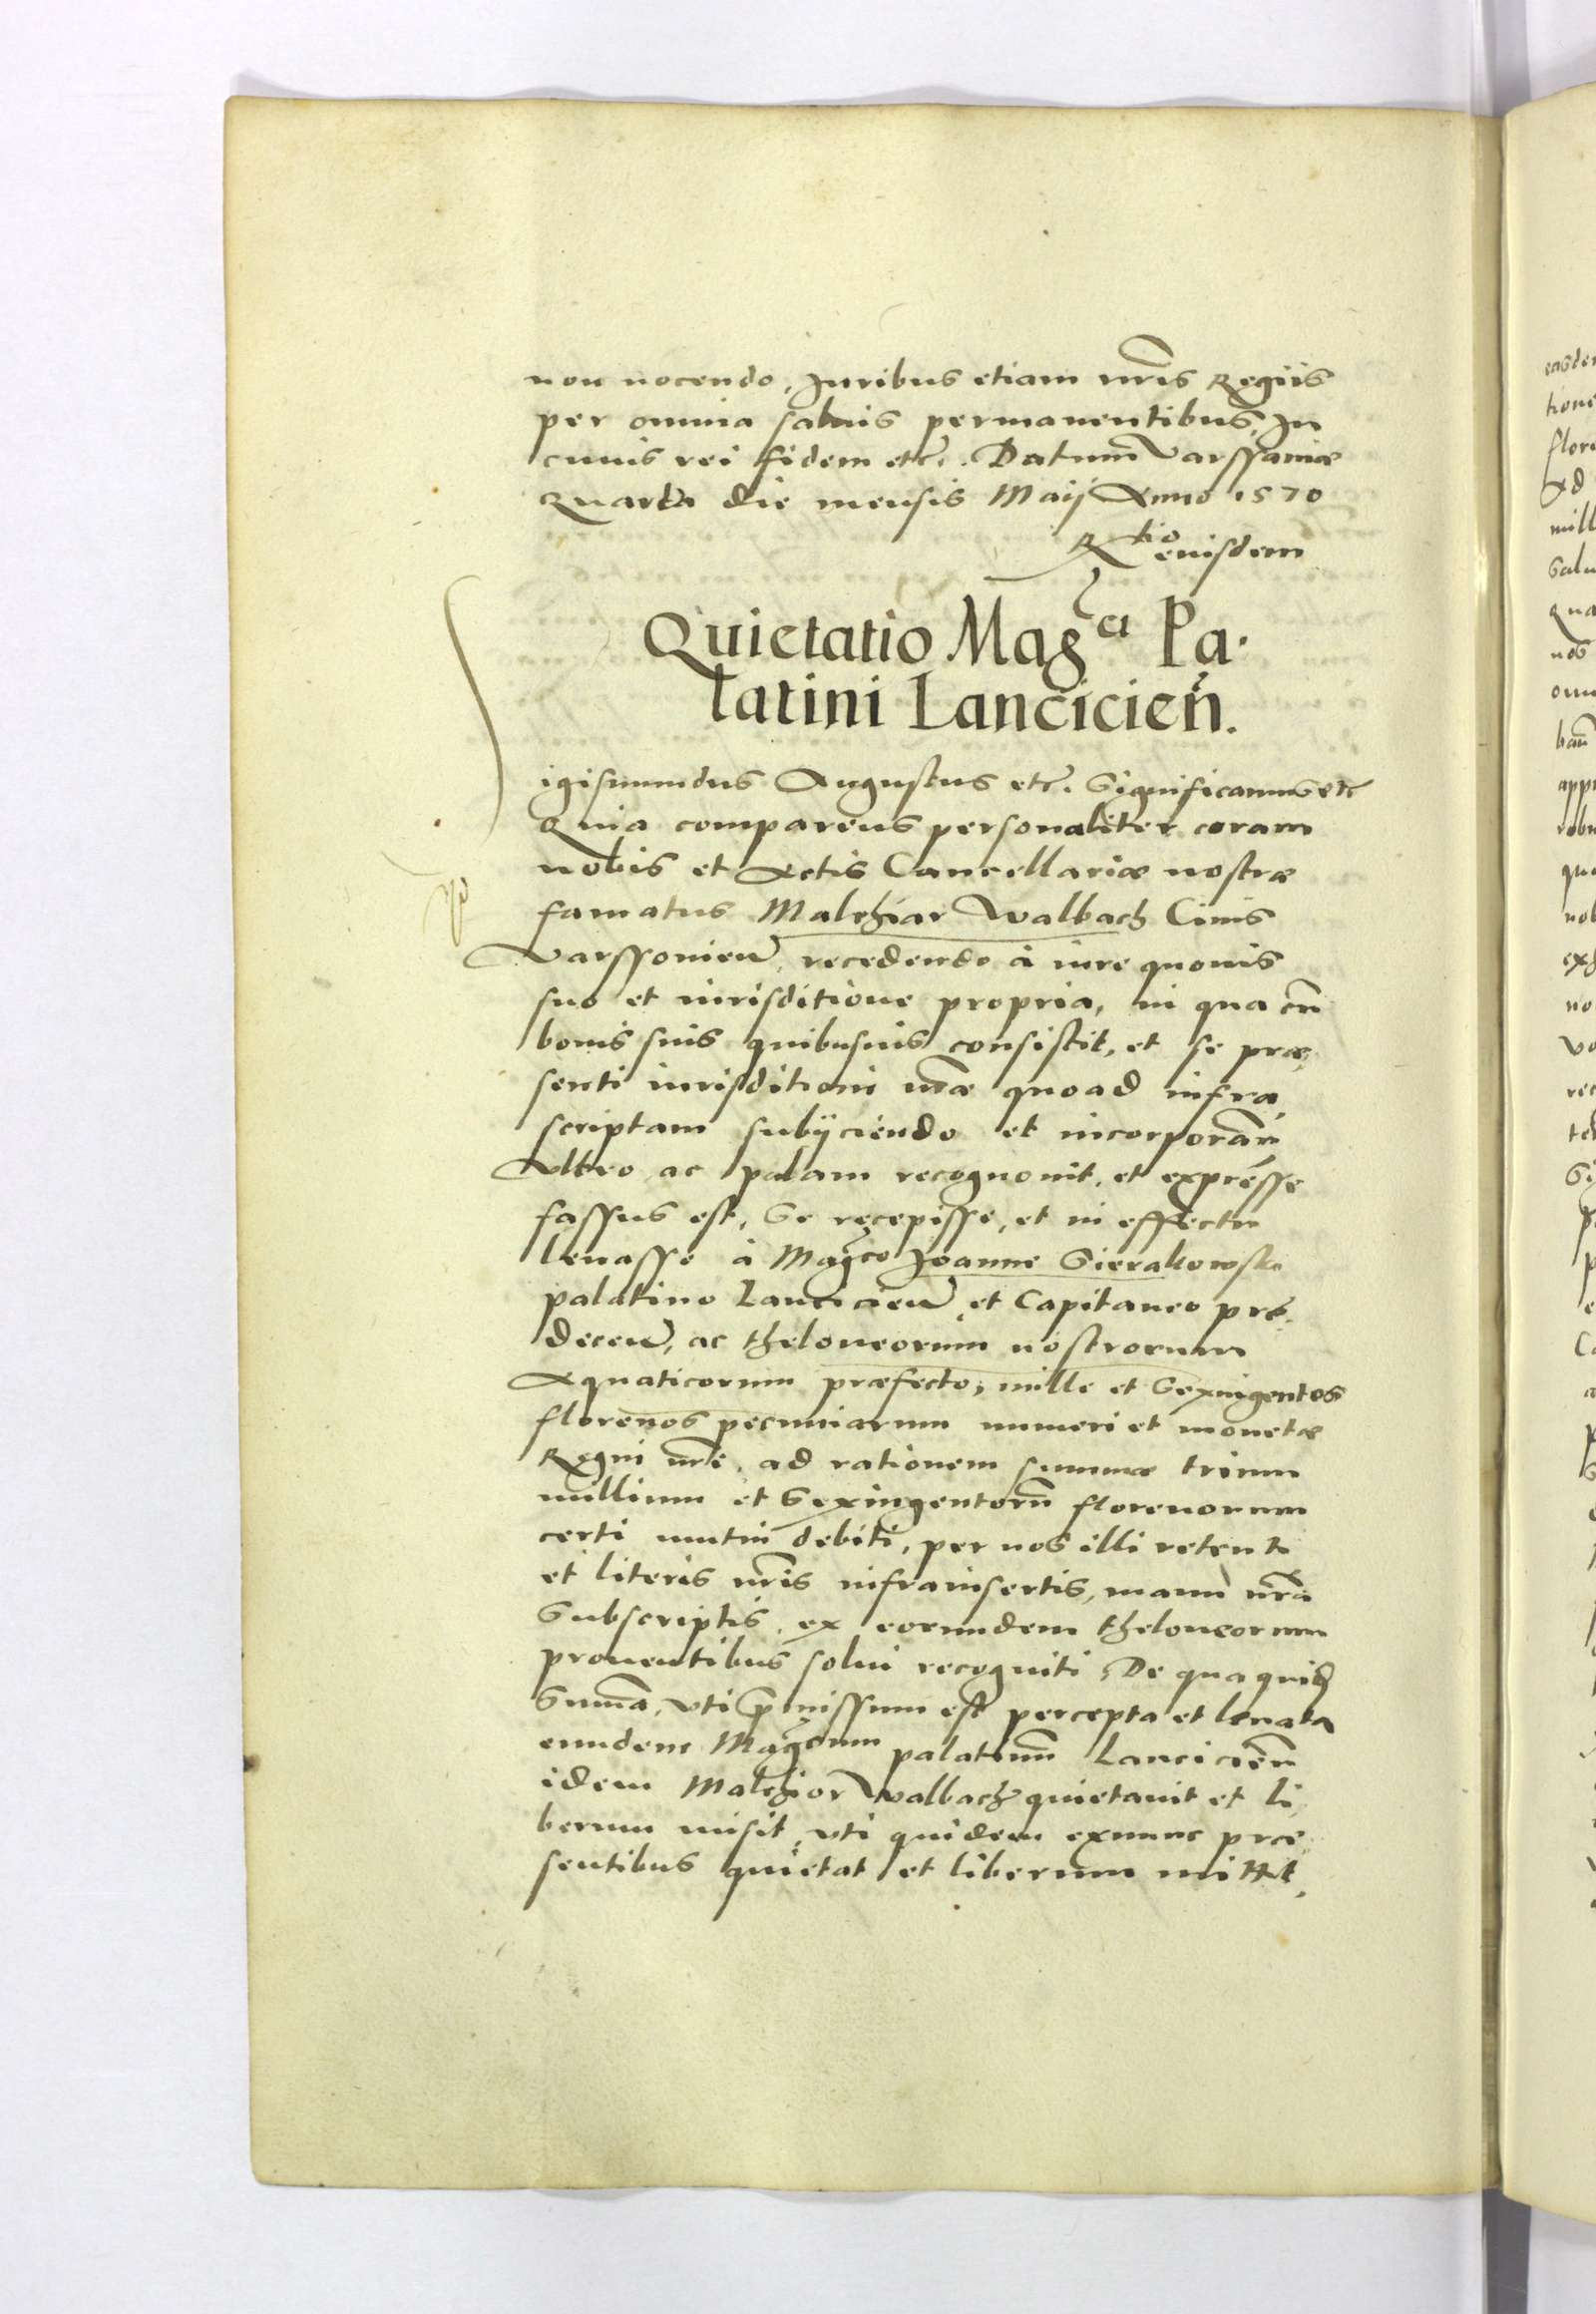 non nocendo, Iuribus etiam nrīs Regiis
per omnia saluis permanentibus, In
cuius rei fidem etc̄. Datum Varssauiæ
Quarta die mensis Maij Anno 1570
Rtio eiusdem
Quietatio Magci Pa-
latini Lancicień.
Sigismundus Augustus etc̄. Significamus etc̄
Quia comparens personaliter coram
nobis et Actis Cancellariæ nostræ
famatus Malchiar Walbach Ciuis
Varssouień, recedendo à iure quouis
suo et iurisditione propria, in qua cū
bonis suis quibusuis consistit, et se præ,
senti iurisditioni nr̄æ quoad infra,
scriptam subijciendo et incorporań
Vltro ac palam recognouit, et expresse
fassus est, Se recepisse, et in effectu
leuasse à Magco Joanne Sierakowski
palatino Lancicień, et Capitaneo pre,
deceń, ac theloneorum nostrorum
Aquaticorum præfecto, mille et Sexingentos
florenos pecuniarum numeri et monetæ
Regni nrī, ad rationem summæ trium
millium et Sexingentorū florenorum
certi mutui debiti, per nos illi retenti
et literis nrīs infrainsertis, manu nrā
Subscriptis, ex eorundem theloneorum
prouentibus solui recogniti, De qua quid̄
Summā, vti p̄missum est percepta et leuata
eundem Magcum palatinū Lanciciēn
idem Malchior Walbach quietauit et li,
berum misit, vti quidem exnunc præ,
sentibus quietat et liberum mittit,